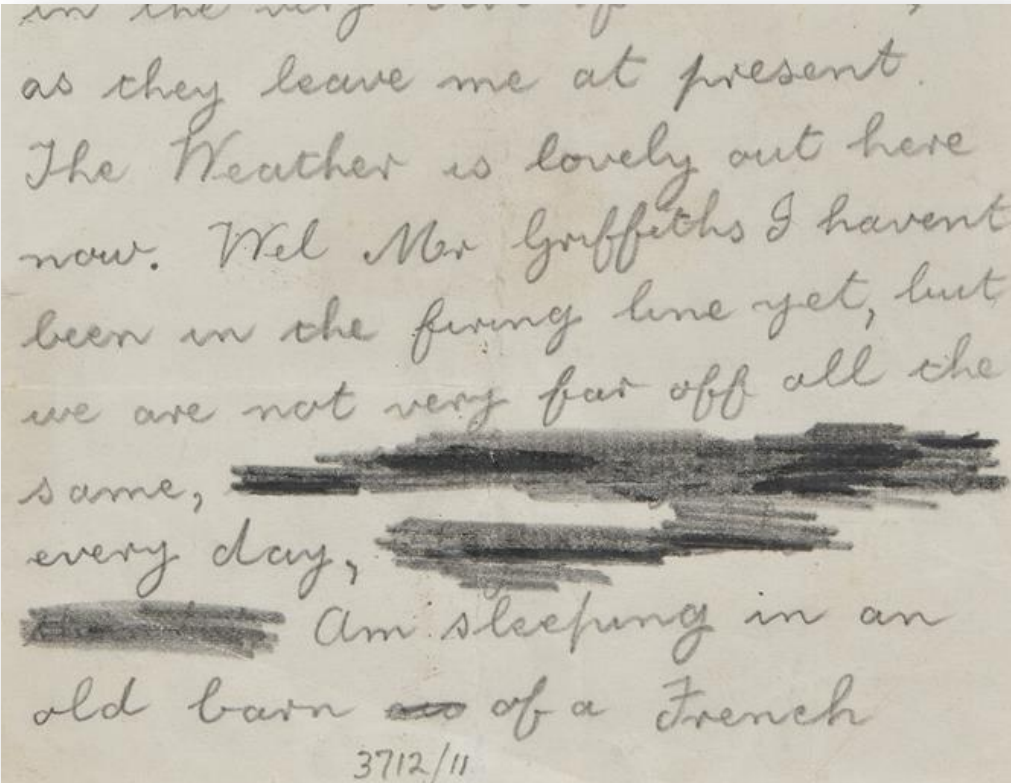 in the very
as they leave me at present.
The Weather is lovely out here
now. Wel Mr Griffiths I havent
been in the firing line yet, but
we are not very far off all the
same,
every day,
Am sleeping in an
old barn of a French
3712/11